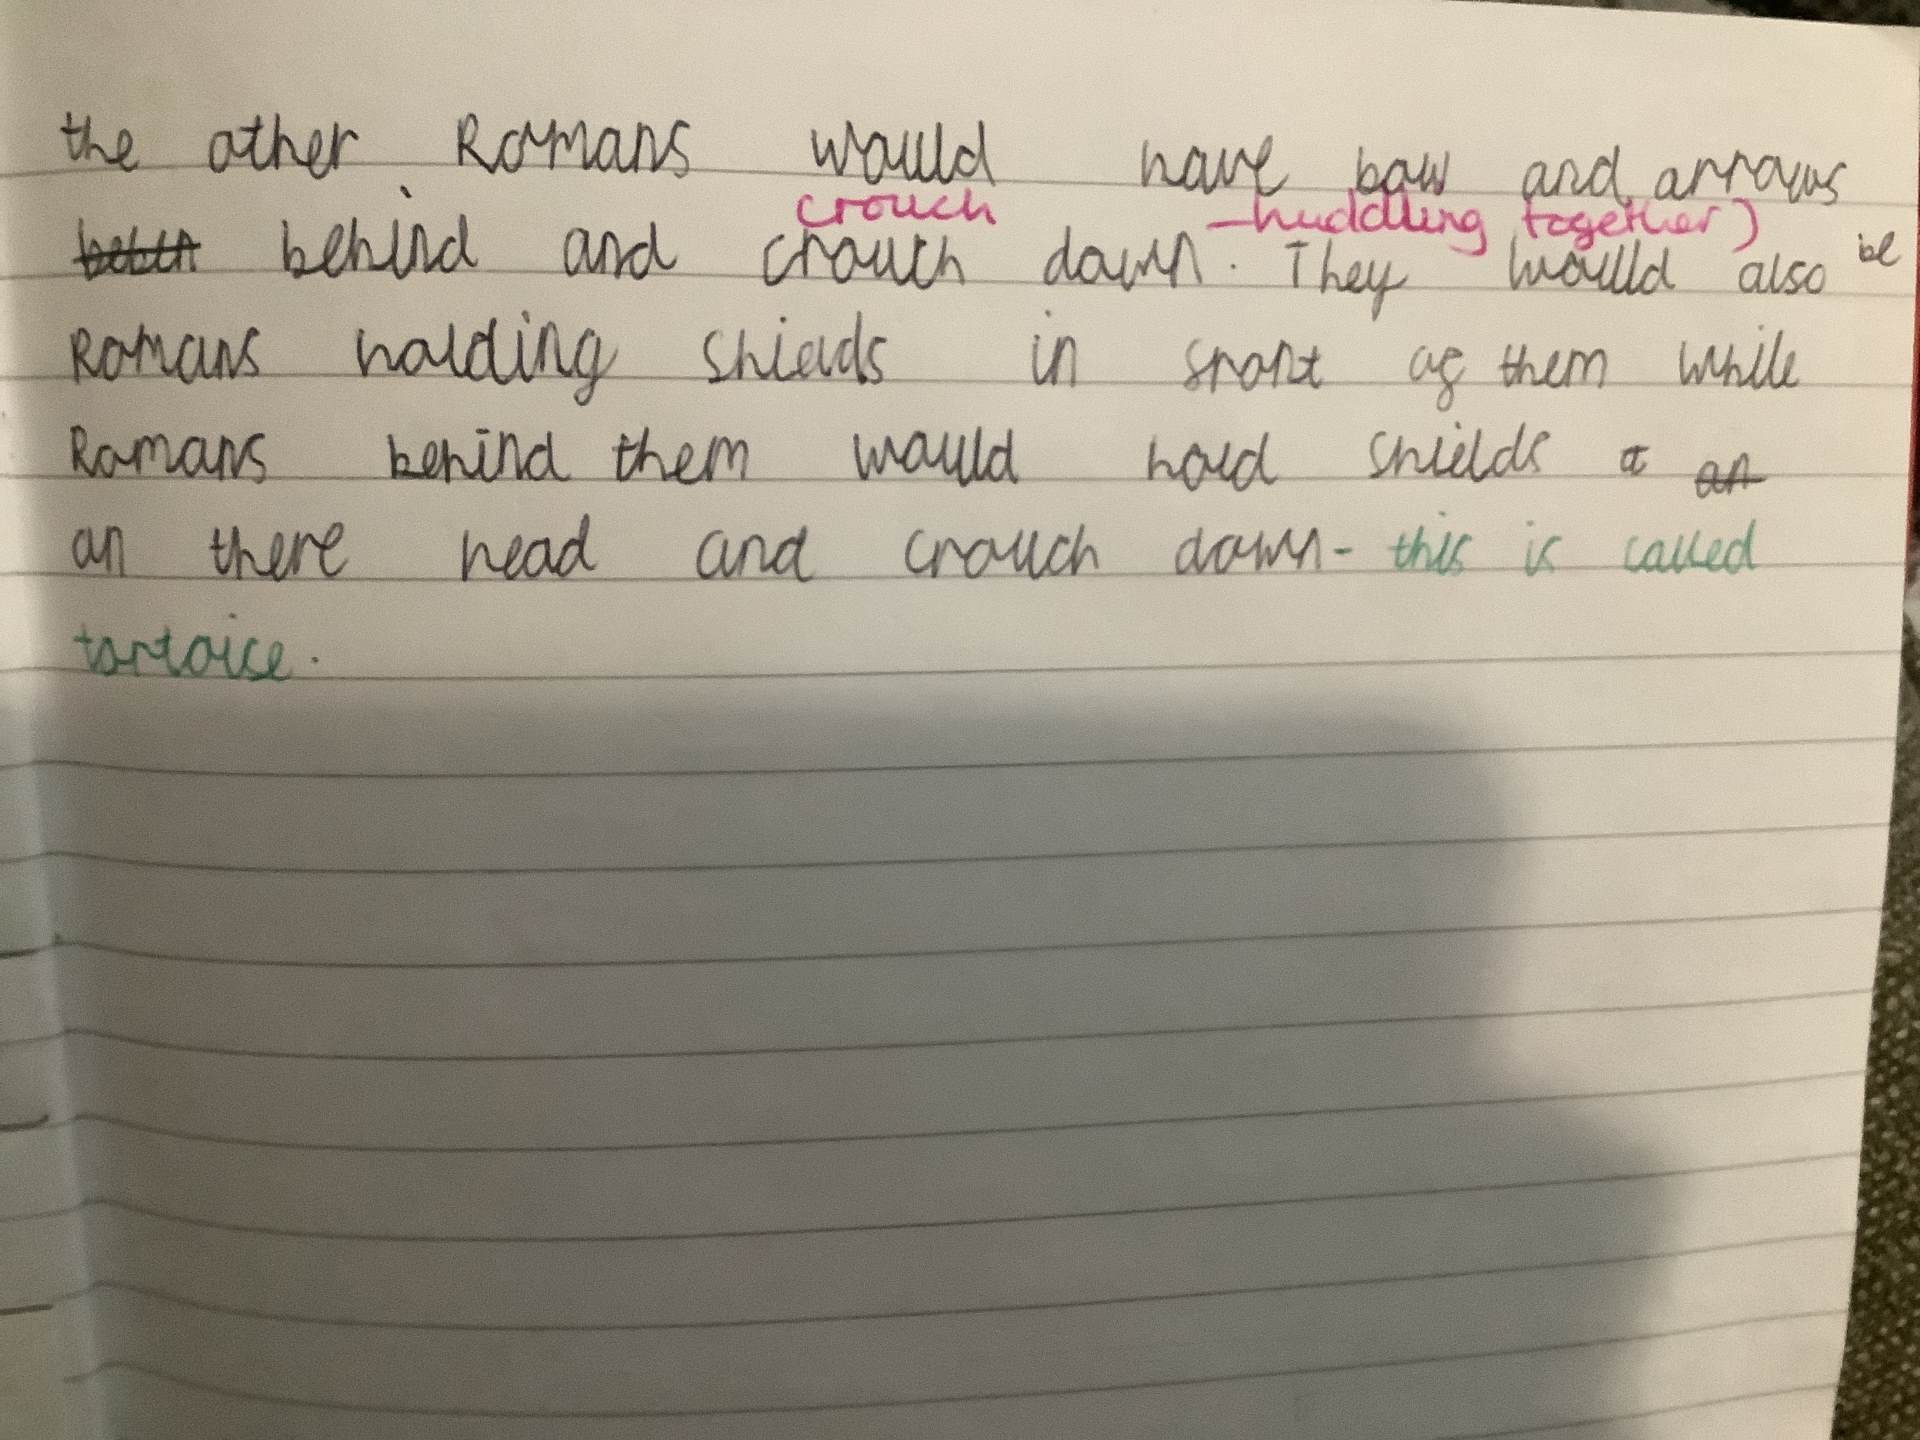 the other Romans would have bow and arrows
crouch -huddling together)
behind and crouch down. They would also be
Romans holding shields in front of them while
Romans behind them would hold shields
on there head and crouch down- this is called
tortoise.